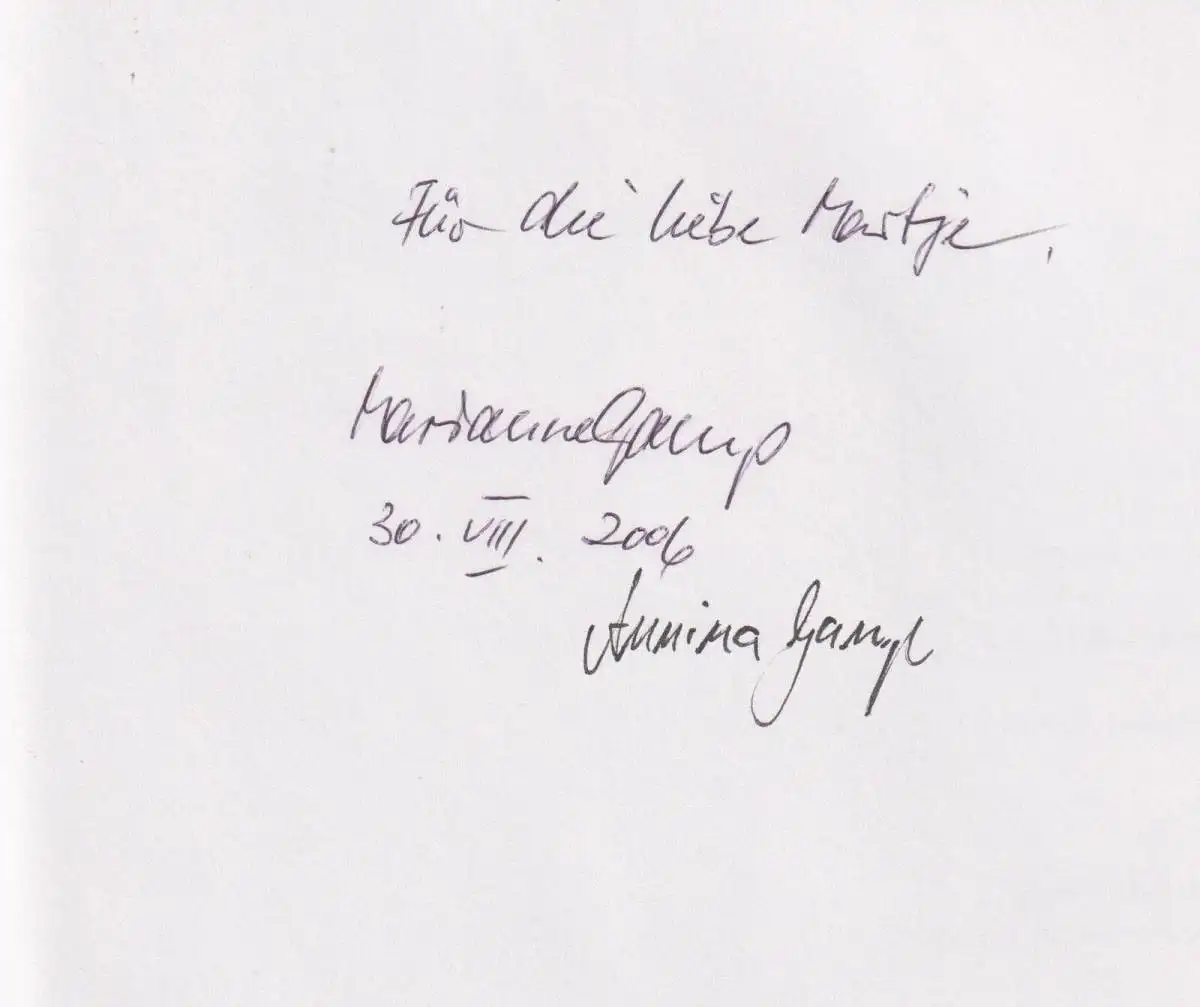 Für die liebe Martje,
Marianne Gamp
30. VIII. 2006
Annina Gamp